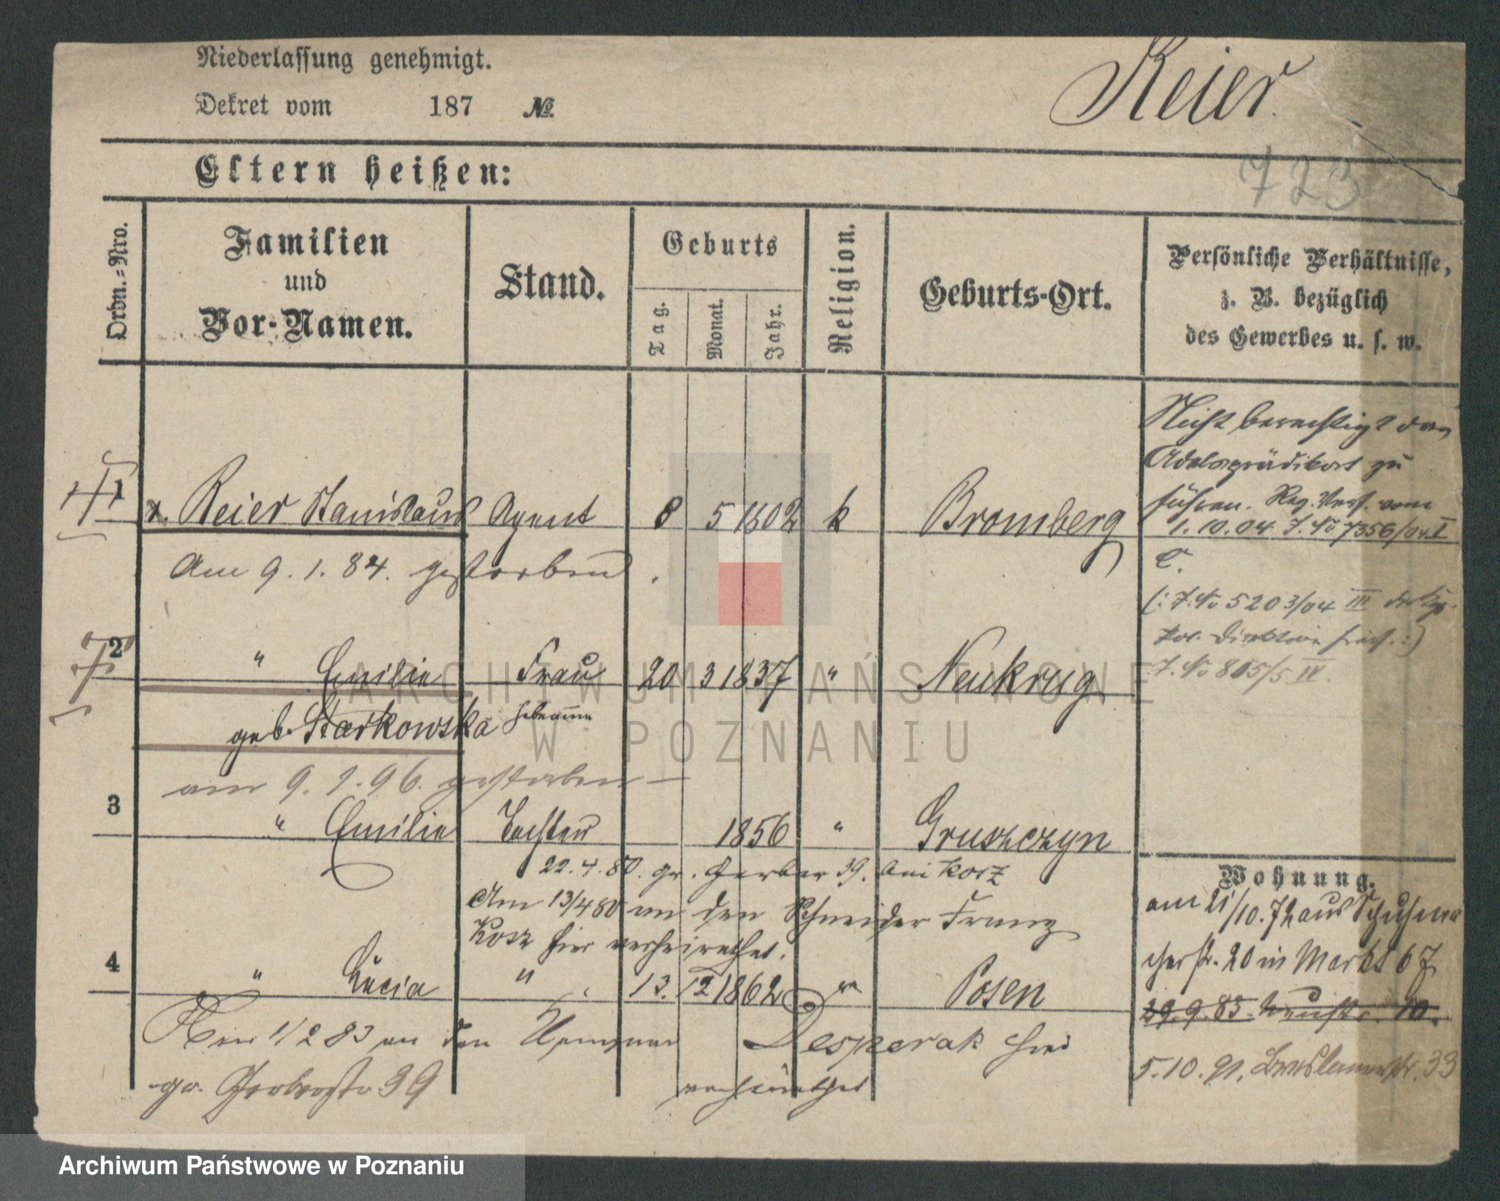 Niederlassung genehmigt.
Dekret vom 187 №.
Reier.
723
Eltern heißen:
Ordn.=Nro.
Familien
und
Vor-Namen.
Stand.
Geburts
Tag.
Monat.
Jahr.
Religion.
Geburts-Ort.
Persönliche Verhältnisse,
z. B. bezüglich
des Gewerbes u. s. w.
Nicht berechtigt das
Adelsprädikat zu
führen. Reg. Verf. vom
1.10.04. J. No 7356/04 I
(: J. No 5203/04 III der
J. No 805/5 IV.
1
Reier Stanislaus Agent 8 5 1802 k Bromberg
Am 9.1.84. gestorben.
2
" Emilie Frau 20 3 1837 " Neukrug
geb. Starkowska Hebamme
am 9.1.96. gestorben
3
" Emilie Tochter 1856 " Gruszczyn
22.4.80. gr. Gerber 39. bei Kosz
Am 13/4 80 an den Schneider Franz
Kosz hier verheirathet.
4
" Lucia " 13. 12 1862 " Posen
1/2 83 an den Desperak hier
gr. Gerberstr 39 verheirathet
Wohnung.
am 21/10.72 aus Schuhma
cherstr. 20 in Markt 67
29.9.83. 10.
5.10.91. Breslauerstr. 33
ARCHIWUM PAŃSTWOWE
W POZNANIU
Archiwum Państwowe w Poznaniu